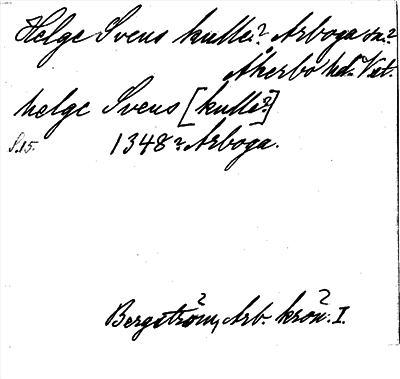 Helge Svens kulle? Arboga sn?
Åkerbo hd. Vstl.
helge Svens [kulle?]
S. 15. 1348? Arboga.
Bergström, Arb. krön. I.